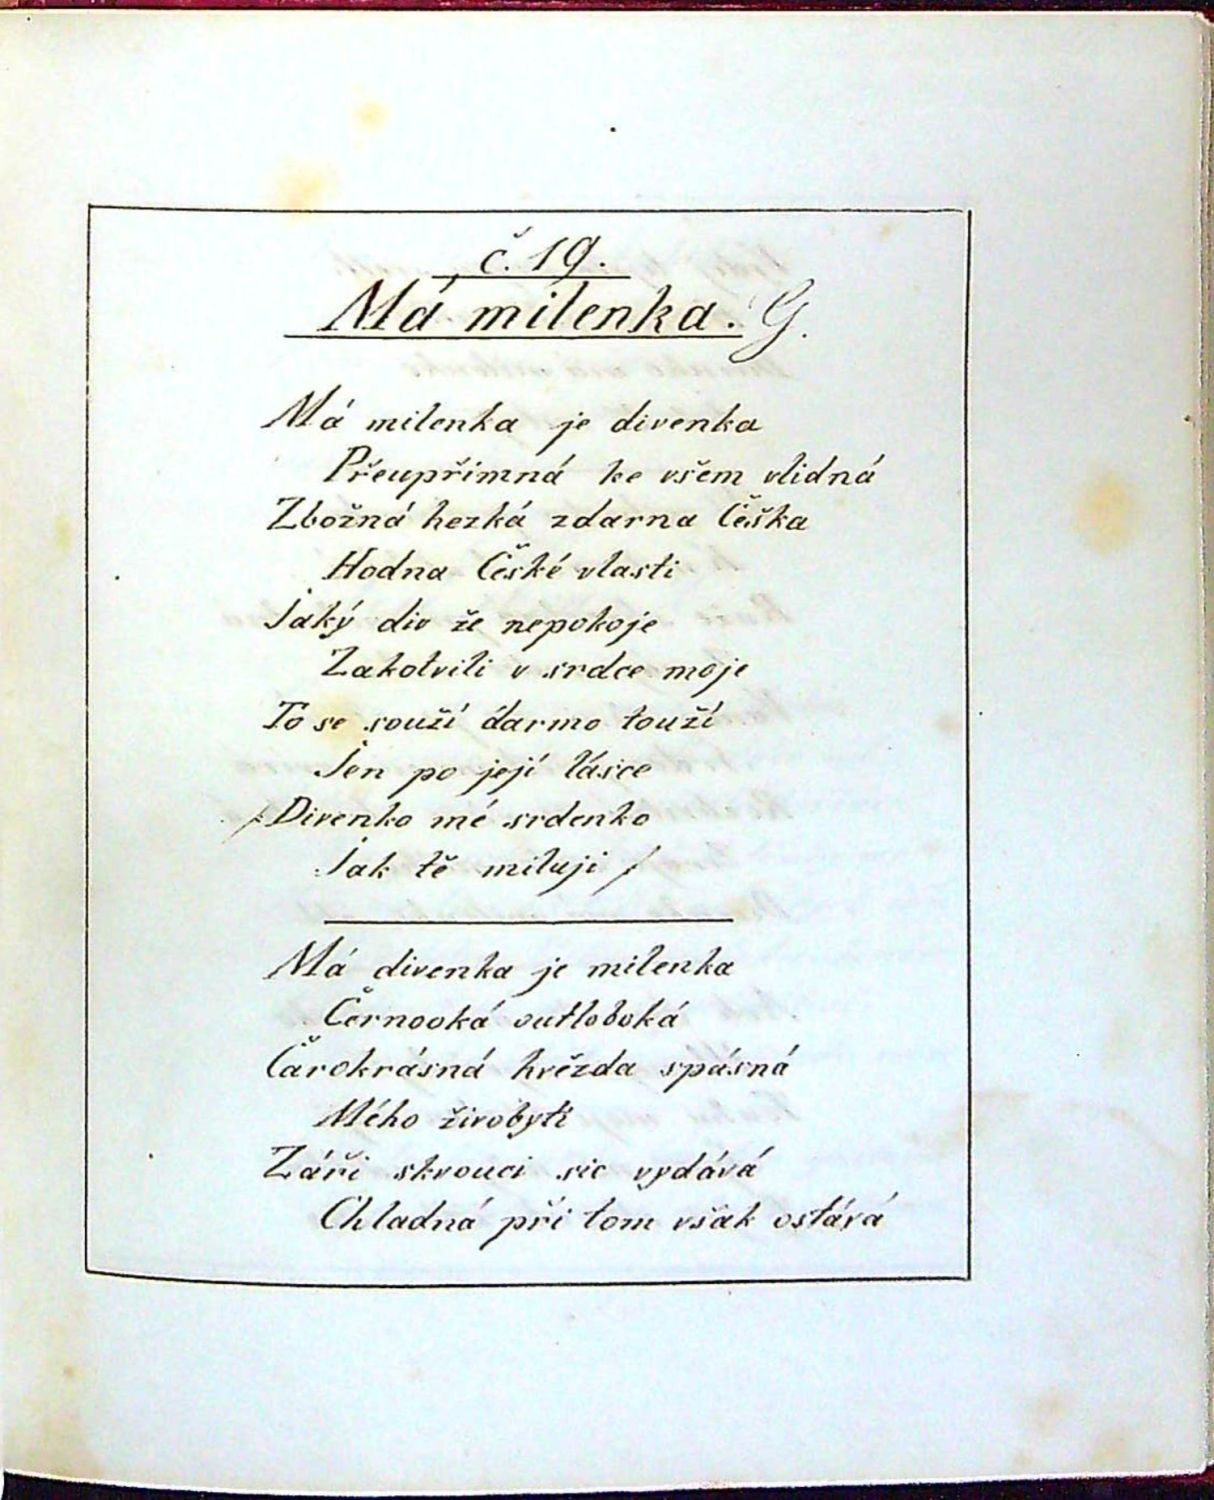 č. 19.
Má milenka. G.
Má milenka je divenka
Přeupřimná ke všem vlidná
Zbožná hezká zdarna Češka
Hodna České vlasti
Jaký div že nepokoje
Zakotvili v srdce moje
To se souží darmo touží
Jen po její lásce
/: Divenko mé srdenko
Jak tě miluji :/
Má divenka je milenka
Černooká outloboká
Čarokrásná hvězda spásná
Mého živobytí
Záři skvouci sic vydává
Chladná při tom však ostává